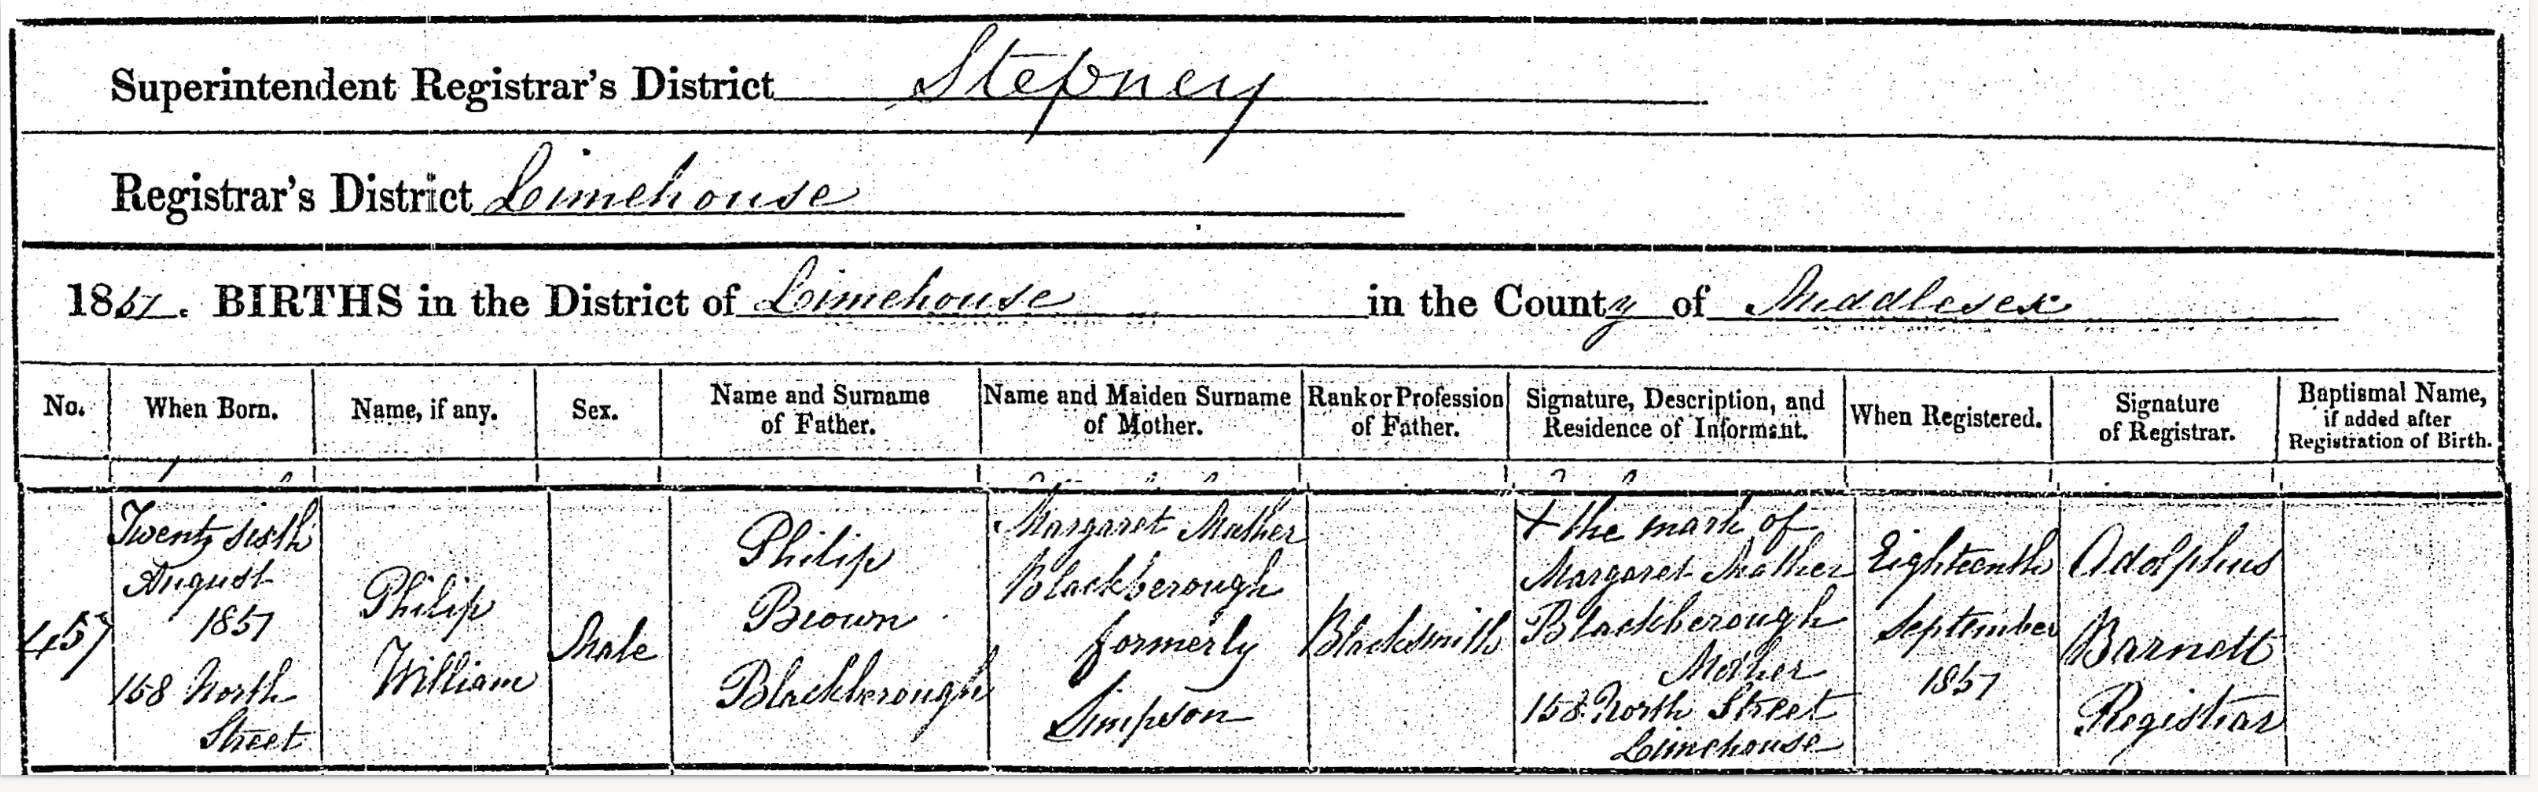 Superintendent Registrar's District Stepney
Registrar's District Limehouse
1857. BIRTHS in the District of Limehouse in the County of Middlesex
No.
When Born.
Name, if any.
Sex.
Name and Surname
of Father.
Name and Maiden Surname
of Mother.
Rank or Profession
of Father.
Signature, Description, and
Residence of Informant.
When Registered.
Signature
of Registrar.
Baptismal Name,
if added after
Registration of Birth.
457
Twenty sixth
August
1857
158 North
Street
Philip
William
Male
Philip
Brown
Blackberough
Margaret Mather
Blackberough
formerly
Simpson
Blacksmith
X the mark of
Margaret Mather
Blackberough
Mother
158 North Street
Limehouse
Eighteenth
September
1857
Adolphus
Barnett
Registrar